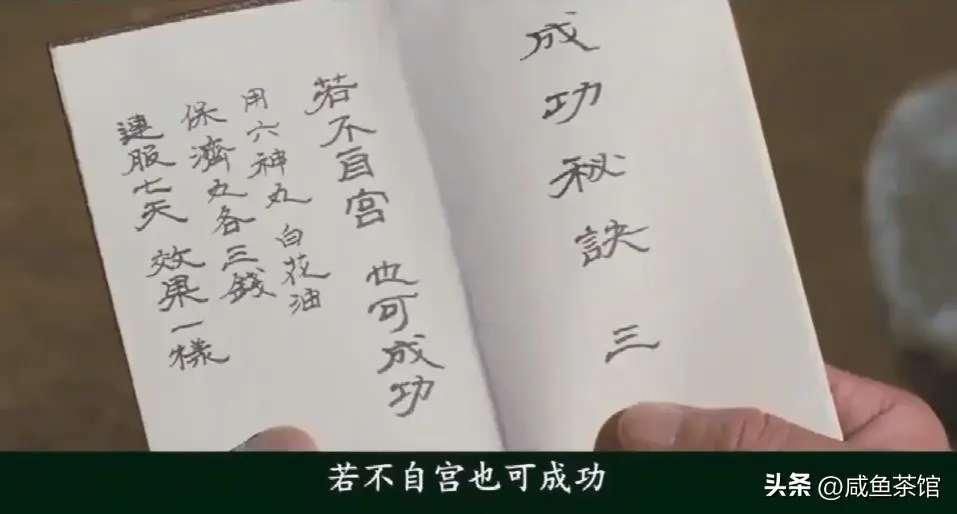 成功秘訣三
若不自宮 也可成功
用六神丸 白花油
保濟丸各三錢
連服七天 效果一樣
若不自宫也可成功
头条 @咸鱼茶馆